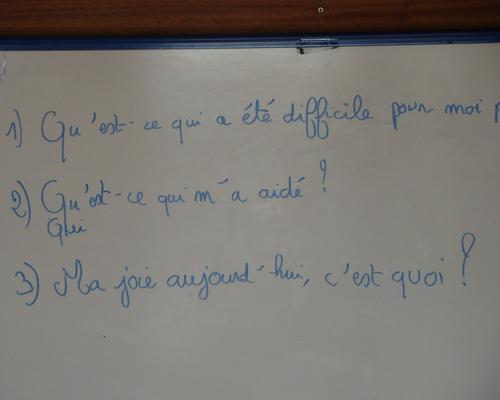 1) Qu'est-ce qui a été difficile pour moi
2) Qu'est-ce qui m'a aidé ?
Qui
3) Ma joie aujourd'hui, c'est quoi ?